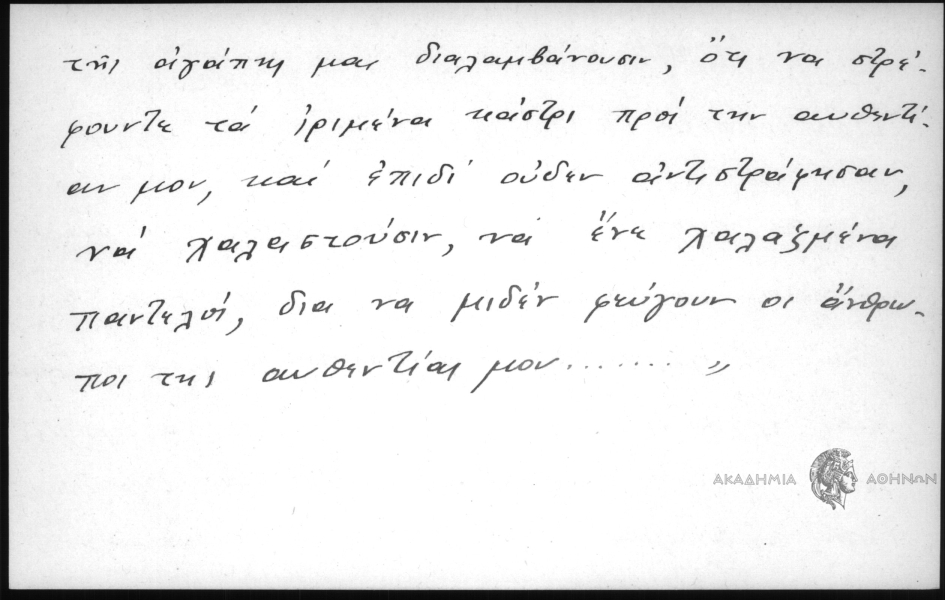 τῆς ἀγάπης μας διαλαμβάνουσιν, ὅτι να στρέ-
φουντε τά ἰριμένα κάστρι πρός την αυθεντί-
αν μου, και ἐπιδί οὐδεν ἀντιστράφησαν,
νά χαλαστοῦσιν, νά ἔνε χαλαξμένα
παντελός, δια να μιδέν φεύγουν οι ἄνθρω-
ποι της αυθεντίας μου........"
ΑΚΑΔΗΜΙΑ ΑΘΗΝΩΝ